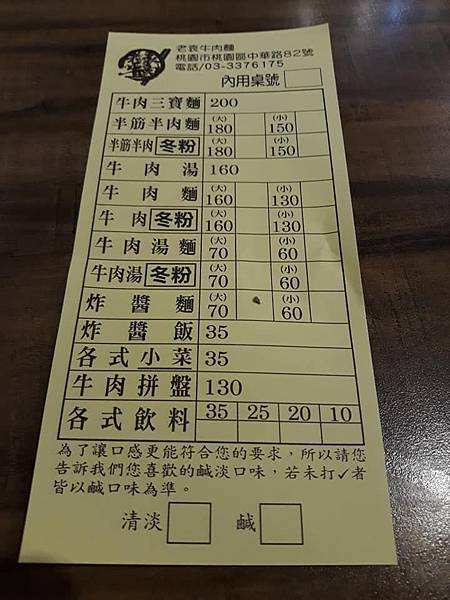 老袁牛肉麵
桃園市桃園區中華路82號
電話/03-3376175
內用桌號
牛肉三寶麵 200
半筋半肉麵 (大) 180 (小) 150
半筋半肉 冬粉 (大) 180 (小) 150
牛肉湯 160
牛肉麵 (大) 160 (小) 130
牛肉 冬粉 (大) 160 (小) 130
牛肉湯麵 (大) 70 (小) 60
牛肉湯 冬粉 (大) 70 (小) 60
炸醬麵 (大) 70 (小) 60
炸醬飯 35
各式小菜 35
牛肉拼盤 130
各式飲料 35 25 20 10
為了讓口感更能符合您的要求，所以請您
告訴我們您喜歡的鹹淡口味，若未打✓者
皆以鹹口味為準。
清淡 鹹